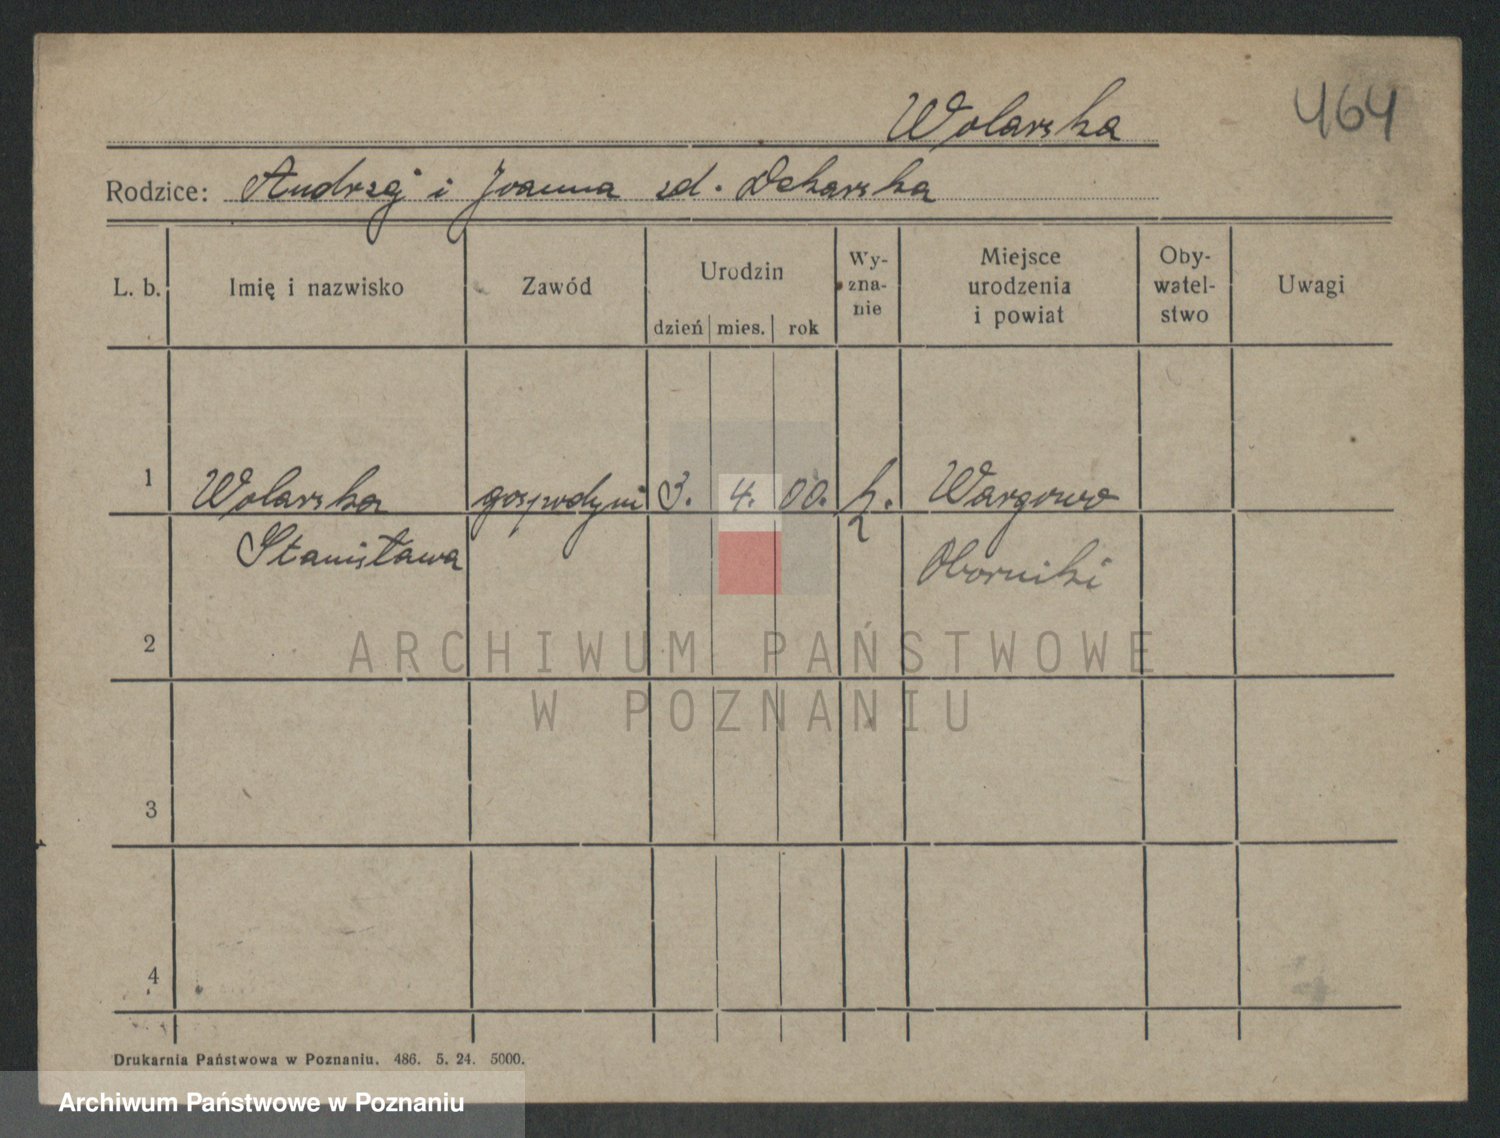 464
Wolarska
Rodzice: Andrzej i Joanna zd. Dekarska
L. b. Imię i nazwisko Zawód Urodzin dzień mies. rok Wy-zna-nie Miejsce urodzenia i powiat Oby-watel-stwo Uwagi
1 Wolarska gospodyni 3. 4. 00. k. Wargowo
Stanisława Oborniki
2
3
4
Drukarnia Państwowa w Poznaniu. 486. 5. 24. 5000.
ARCHIWUM PAŃSTWOWE
W POZNANIU
Archiwum Państwowe w Poznaniu